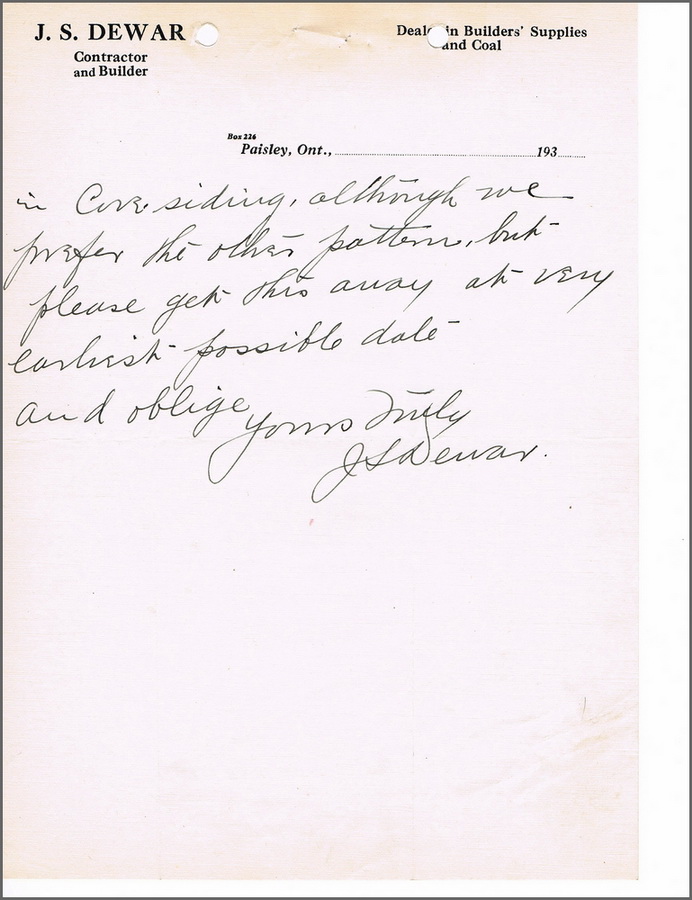 J. S. DEWAR
Contractor
and Builder
Dealer in Builders' Supplies
and Coal
Box 226
Paisley, Ont., 193
in Cove siding, although we
prefer the other pattern, but
please get this away at very
earliest possible date
and oblige
Yours Truly
JS Dewar.